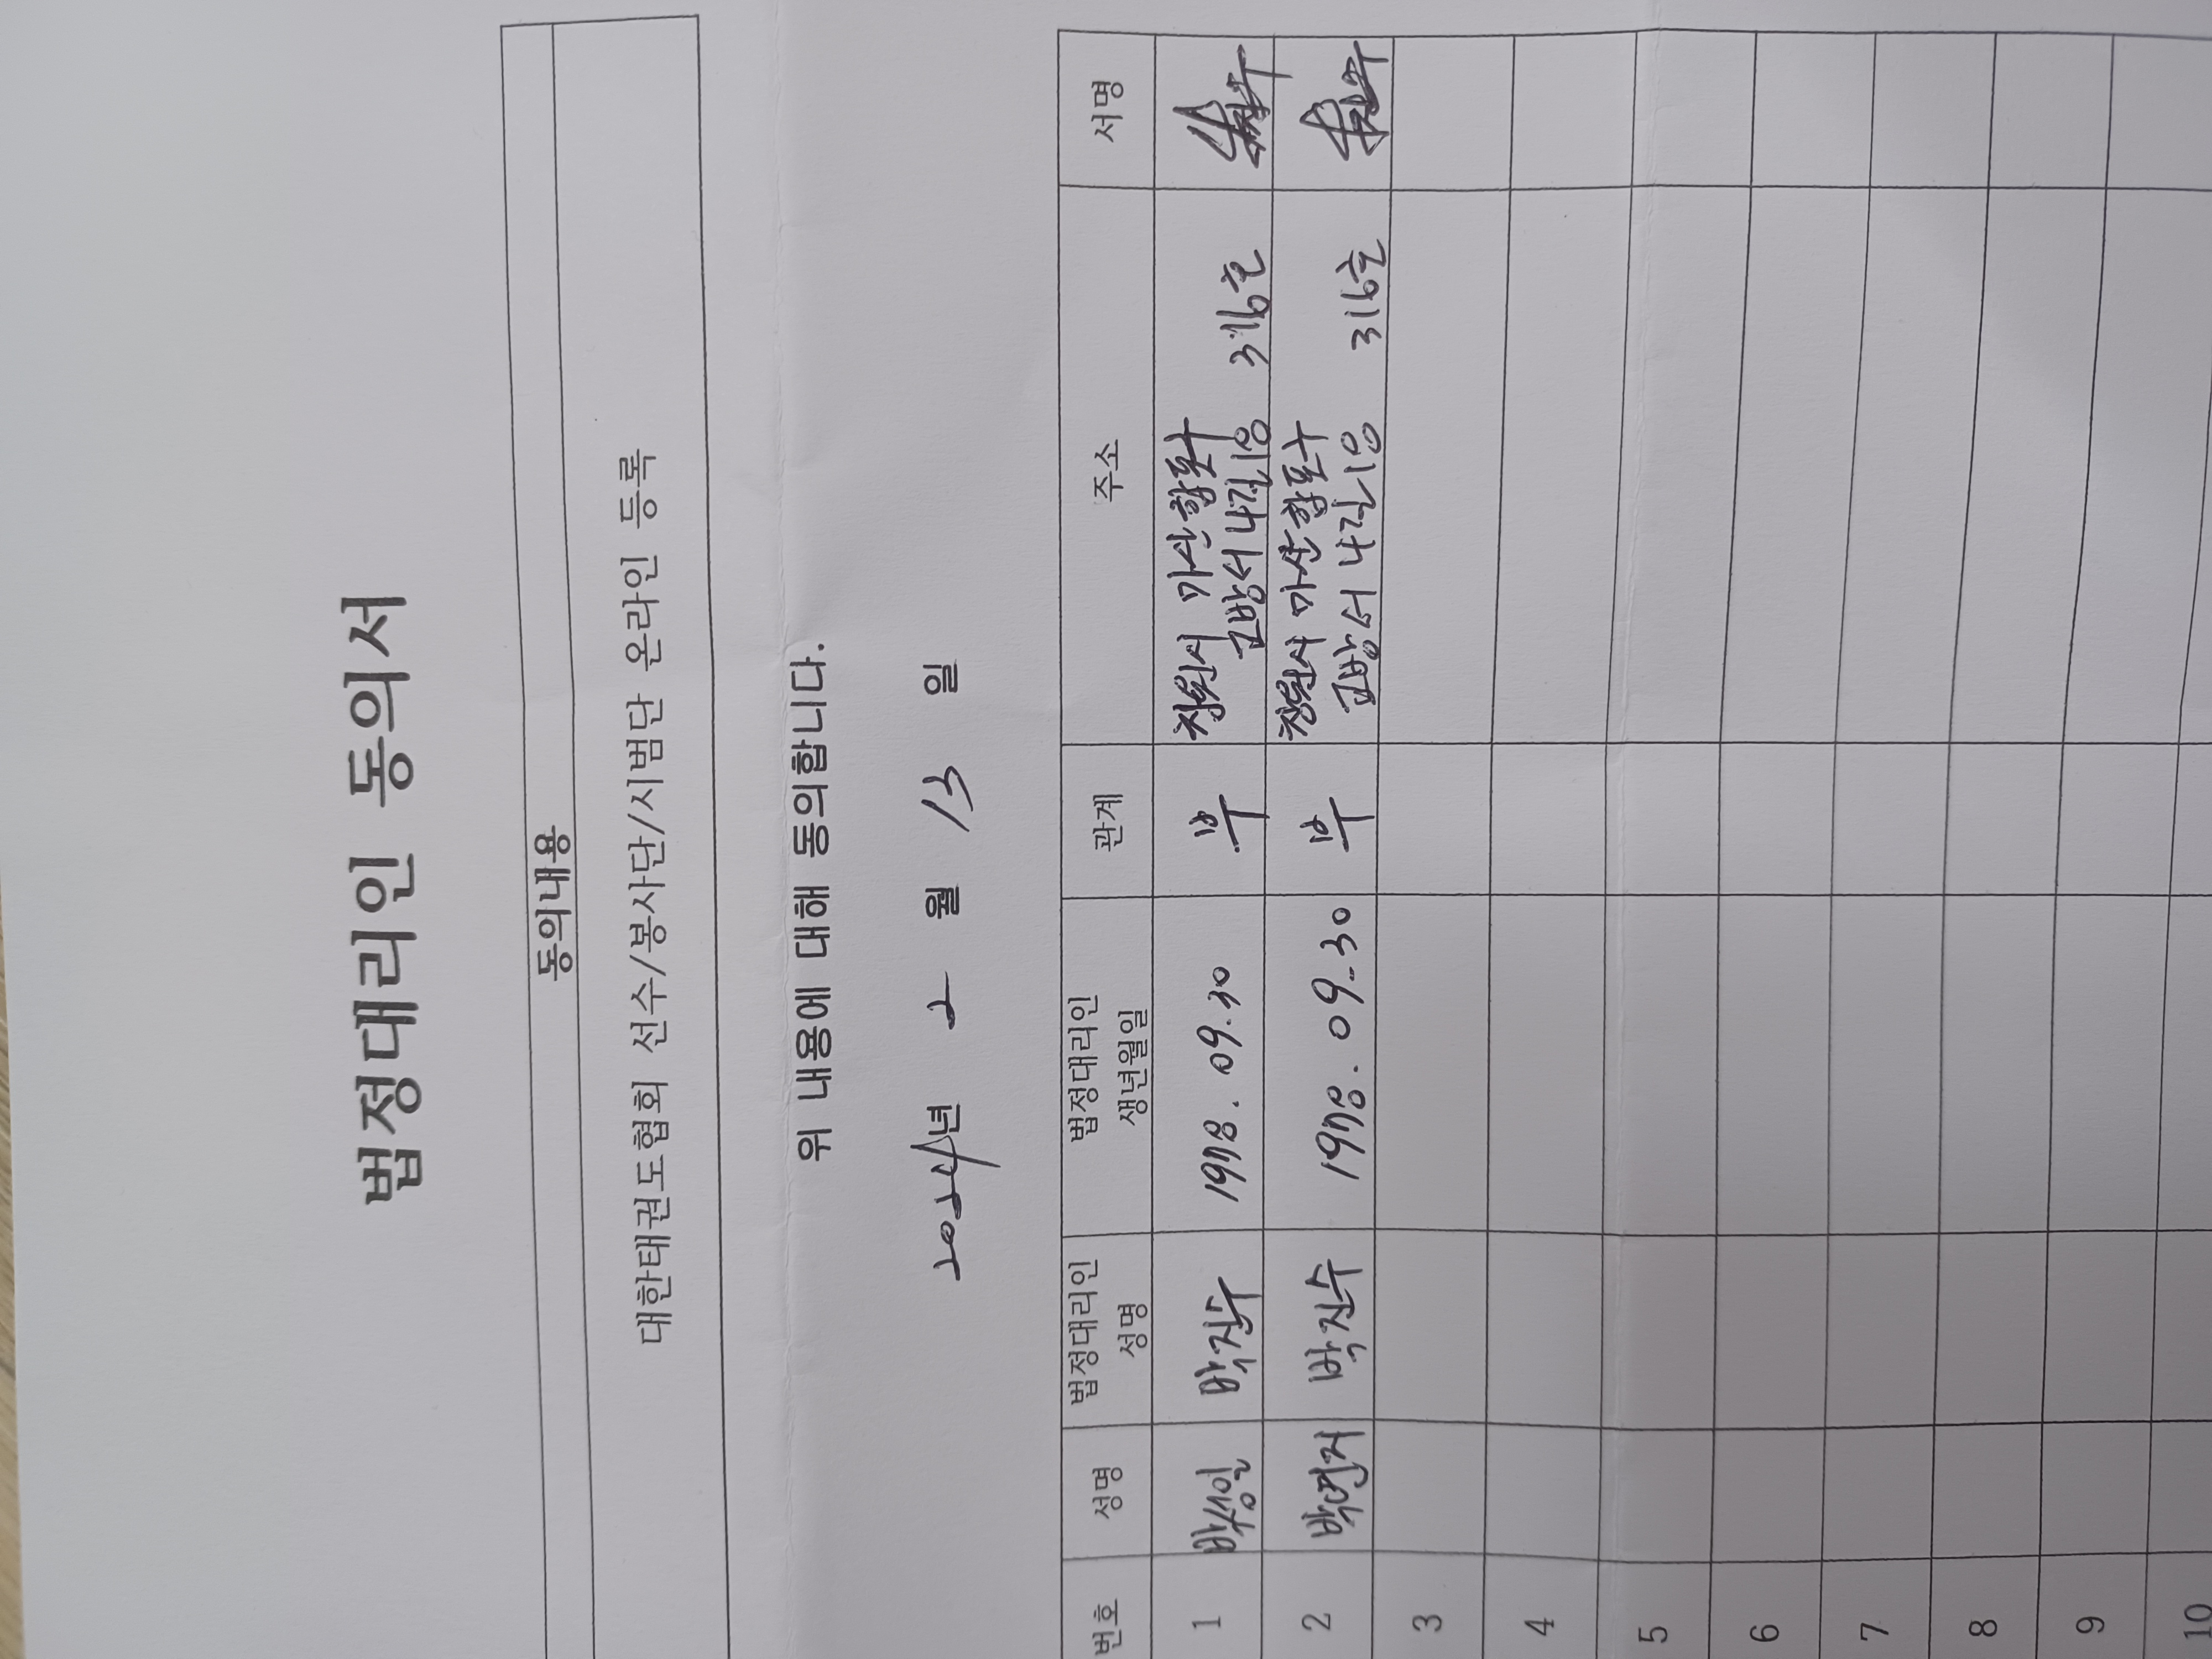 법정대리인 동의서
동의내용
대한태권도협회 선수/봉사단/시범단 온라인 등록
위 내용에 대해 동의합니다.
2024년 2 월 13 일
번호 성명 법정대리인 성명 법정대리인 생년월일 관계 주소 서명
1 박성일 박진수 1978. 09. 30 부 창원시 마산합포구
교방서내길 18 316호
2 박현지 박진수 1978. 09. 30 부 창원시 마산합포구
교방서내길 18 316호
3
4
5
6
7
8
9
10